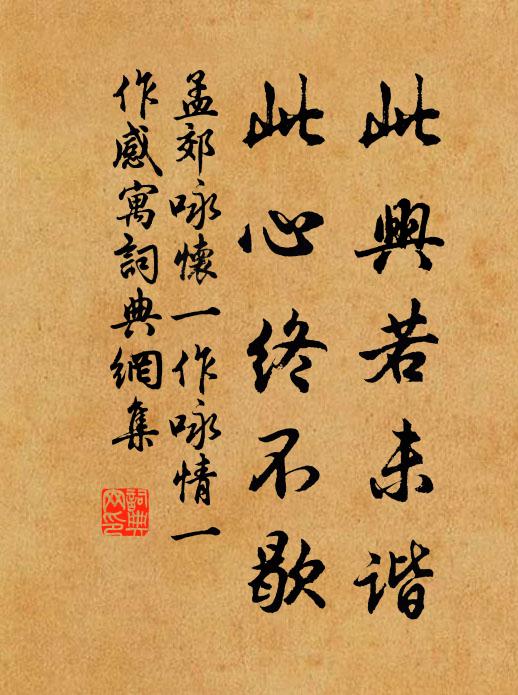 此興若未谐
此心终不歇
孟郊咏懷一作咏情一
作感寓詞典網集
詞典
网印